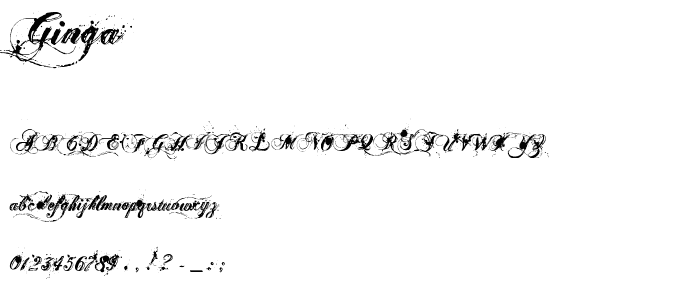 Ginga
ABCDEFGHIJKLMNOPQRSTUVWXYZ
abcdefghijklmnopqrstuvwxyz
0123456789.,!?-_:;